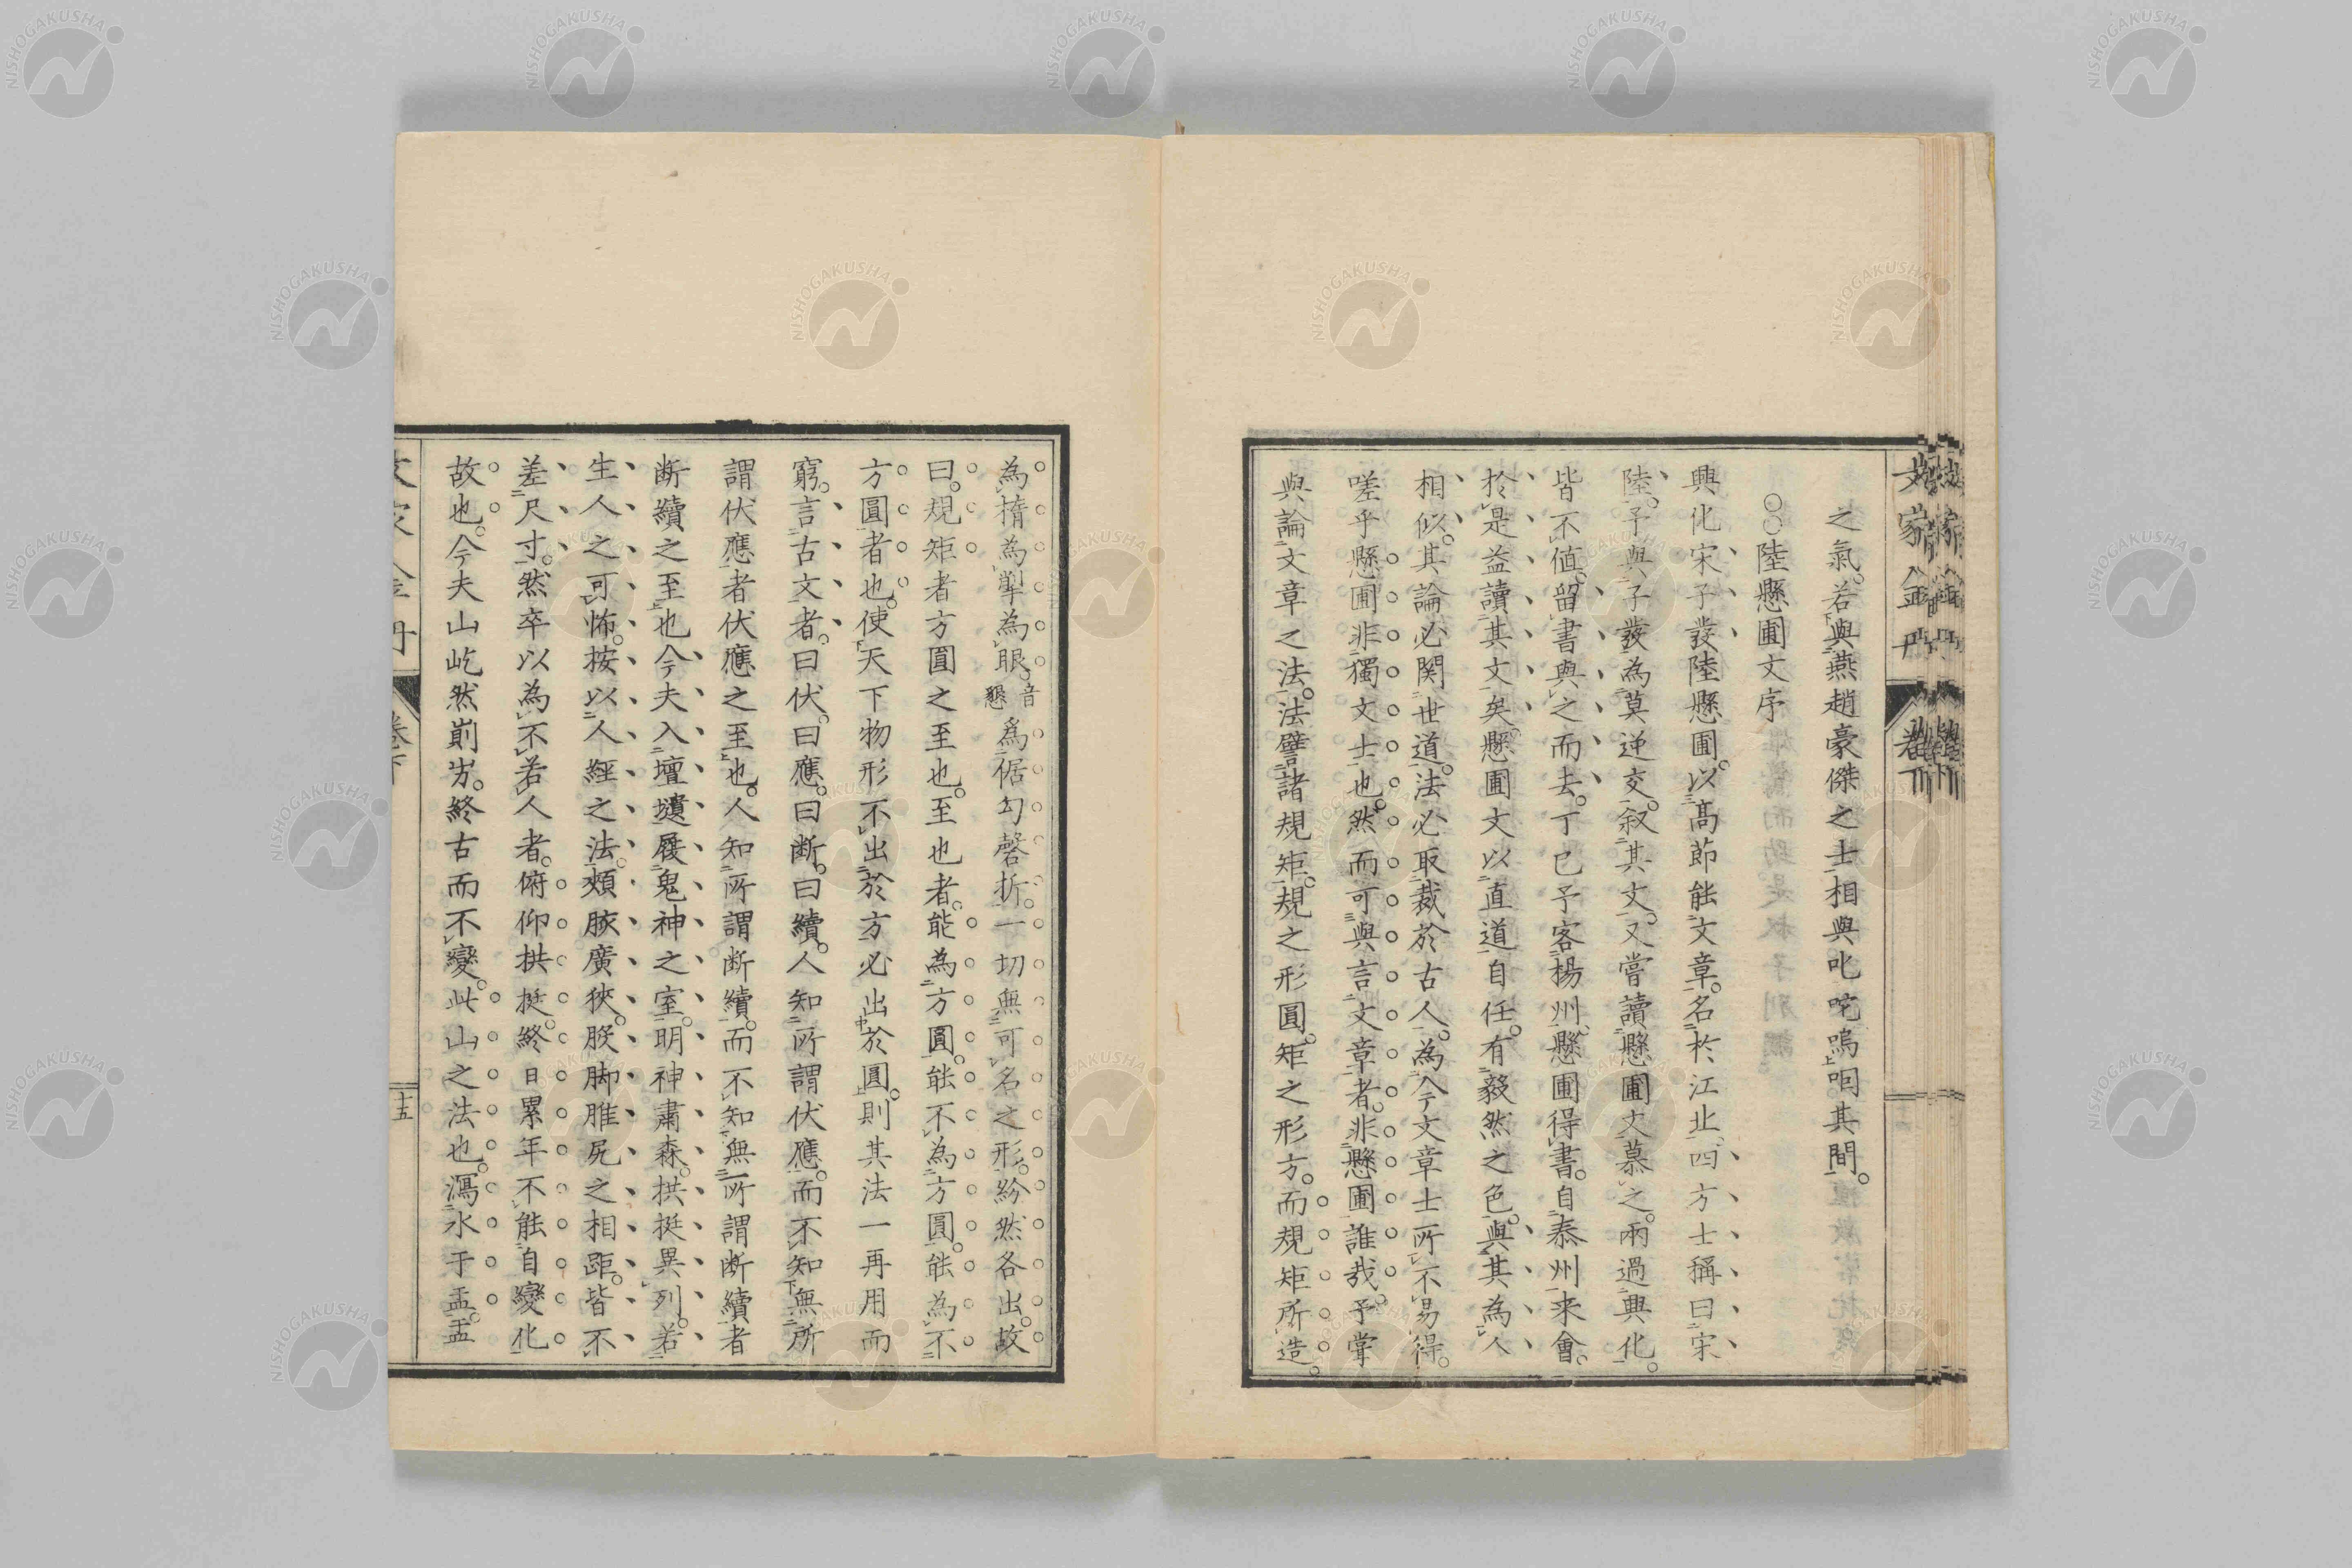 之氣。若與燕趙豪傑之士相與叱咤嗚咽其間。
○○陸懸圃文序
興化宋子發陸懸圃。以高節能文章。名於江北。四方士稱曰宋
陸。予與子發為莫逆交。叙其文。又嘗讀懸圃文慕之。兩過興化。
皆不値。留書與之而去。丁巳予客楊州。懸圃得書。自泰州来會。
於是益讀其文矣。懸圃文以直道自任。有毅然之色。與其為人
相似。其論必関世道。法必取裁於古人。為今文章士所不易得。
嗟乎懸圃非獨文士也。然而可與言文章者。非懸圃誰哉。予嘗
與論文章之法。法譬諸規矩。規之形圓。矩之形方。而規矩所造。
為橢為掣為眼。音懇為倨勾磬折。一切無可名之形。紛然各出。故
曰。規矩者方圓之至也。至也者。能為方圓。能不為方圓。能為不
方圓者也。使天下物形不出於方必出於圓。則其法一再用而
窮。言古文者。曰伏。曰應。曰断。曰續。人知所謂伏應。而不知無所
謂伏應者伏應之至也。人知所謂断續。而不知無所謂断續者
断續之至也。今夫入壇壝履鬼神之室。明神肅森。拱挺異列。若
生人之可怖。按以人經之法。頰脥廣狹。朘脚脽尻之相距。皆不
差尺寸。然卒以為不若人者。俯仰拱挺。終日累年不能自變化
故也。今夫山屹然崱屶。終古而不變。此山之法也。瀉水于盂。盂
文家金丹
卷下
十五